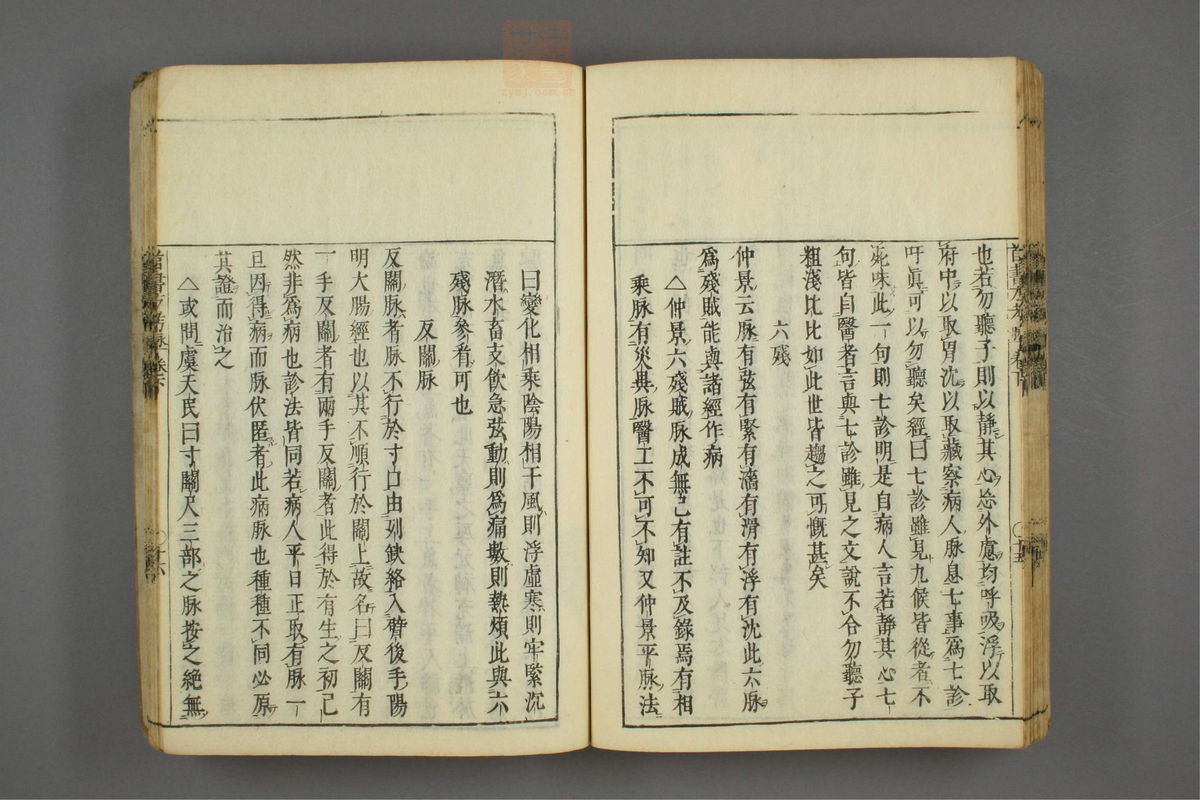 也若勿聽子則以靜其心忘外慮均呼吸浮以取
府中以取胃沈以取藏察病人脉息七事爲七診
吁眞可以勿聽矣經曰七診雖見九候皆從者不
死味此一句則七診明是自病人言若靜其心七
句皆自醫者言與七診雖見之文說不合勿聽子
粗淺比比如此世皆趨之可慨甚矣
六殘
仲景云脉有弦有緊有濇有滑有浮有沈此六脉
爲殘賊能與諸經作病
△仲景六殘賊脉成無己有註不及錄焉有相
乘脉有災異脉醫工不可不知又仲景平脉法
曰變化相乘陰陽相干風則浮虛寒則牢緊沉
潛水畜支飲急弦動則爲痛數則熱煩此與六
殘脉參看可也
反關脉
反關脉者脉不行於寸口由列缺絡入臂後手陽
明大腸經也以其不順行於關上故名曰反關有
一手反關者有兩手反關者此得於有生之初已
然非爲病也診法皆同若病人平日正取有脉一
旦因得病而脉伏匿者此病脉也種種不同必原
其證而治之
△或問虞天民曰寸關尺三部之脉按之絶無
十五
十六
zysj.com.cn